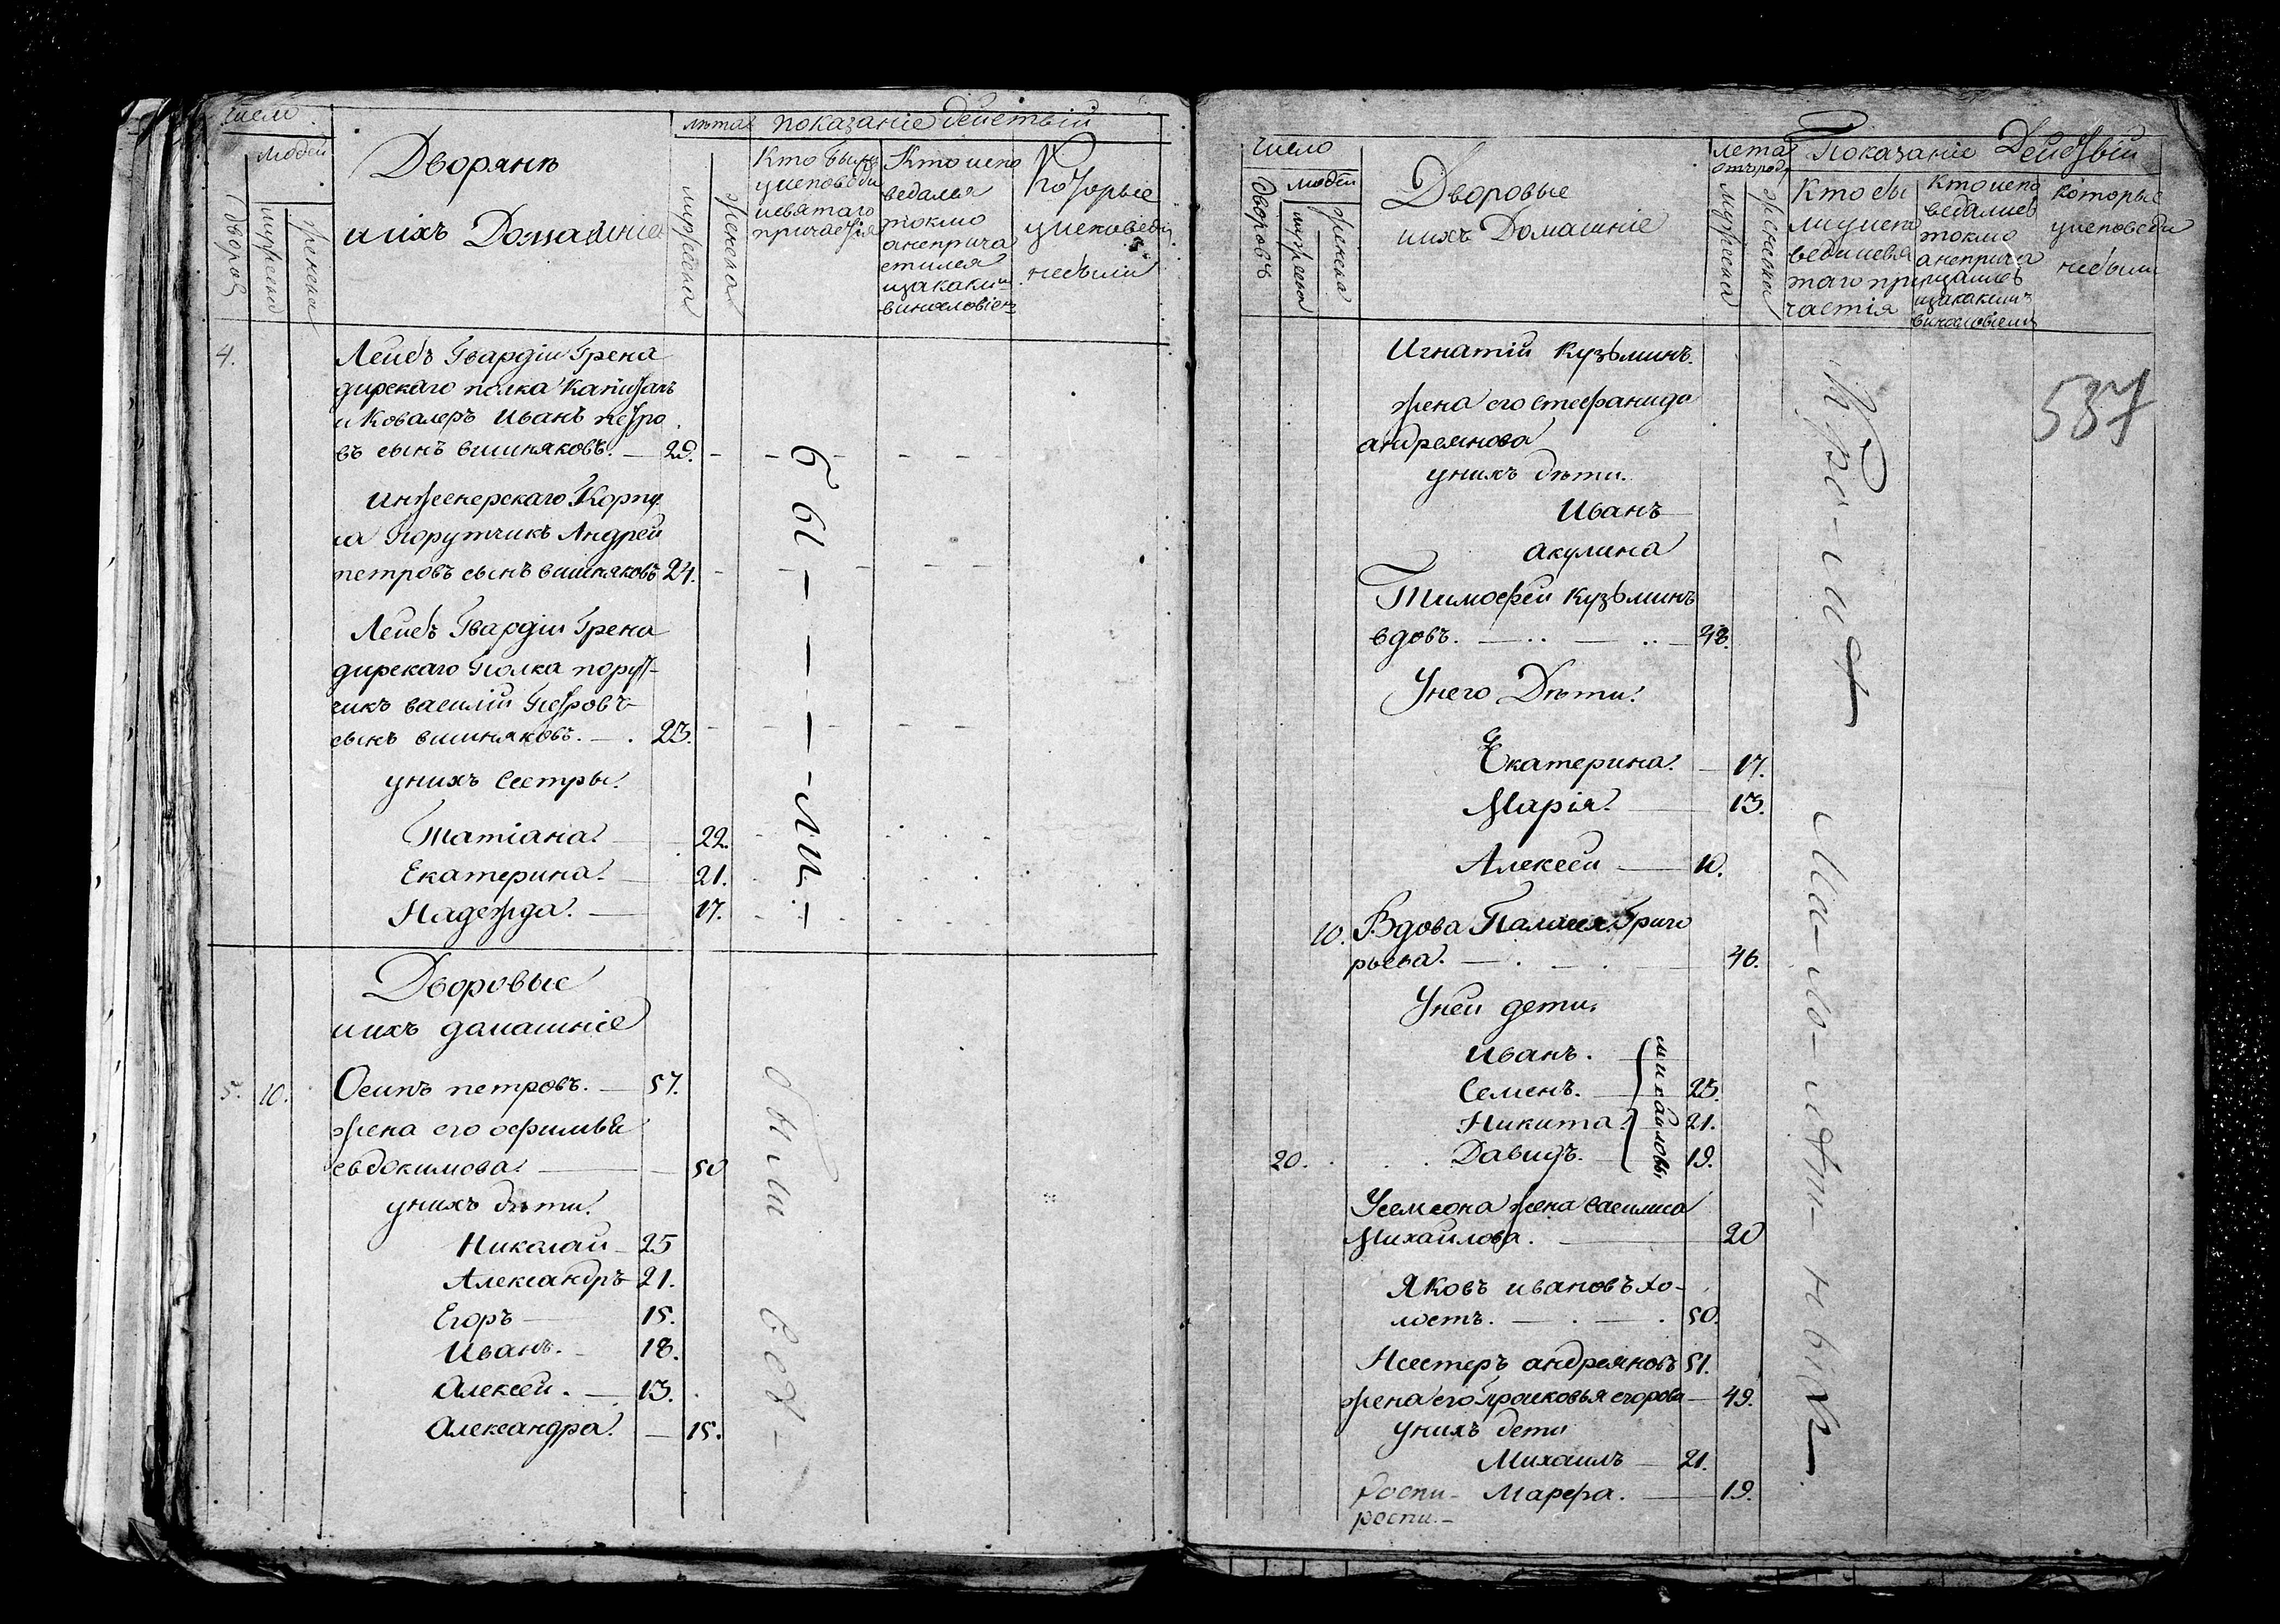 число
людей
дворовъ
мужеска
женска
Дворянѣ
и ихъ Домашніе
лѣта
мужеска
женска
показаніе действій
Кто были
уисповѣди
исвятаго
причастія
Кто испо
ведался
токмо
анеприча
стился
изакаким
винословіемъ
Которые
уисповеди
небыли
4.
Лейбъ Гвардіи Грена
дирскаго полка Капитанъ
и Ковалеръ Иванъ петро
въ сынъ вишняковъ. — 29.
инженерскаго Корпу
са Порутчикъ Андрей
петровъ сынъ вишняковъ 24.
Лейбъ Гвардіи Грена
дирскаго Полка порут-
чикъ василій Петровъ
сынъ вишняковъ. — . 23.
унихъ Сестры.
Татіана. 22.
Екатерина. 21.
Надежда. — 17.
бы — — — ли —
Дворовые
иихъ домашніе
5. 10. Осипъ петровъ. — 57.
жена его офимья
евдокимова. — 50
унихъ дѣти.
Николай 25
Александръ 21.
Егоръ — 15.
Иванъ. 18.
Алексей. — 13.
Александра. — 15.
были
число
людей
дворовъ
мужеска
женска
Дворовые
иихъ Домашніе
лета
отъроду
мужеска
женска
Показаніе Действій
Кто бы
лиуиспо
ведиисвя
таго при
частія
Кто испо
ведались
токмо
анеприча
щались
изакакимъ
винословіемъ
которые
уисповеди
небыли
537
Игнатій Кузьминъ.
жена его стефанида
андреянова
унихъ дѣти.
Иванъ
акулина
Тимофей Кузьминъ
вдовъ. — .. — .. — 48.
Унего Дѣти.
Екатерина. — 17.
Марія. — 13.
Алексей — 10.
10. Вдова Палагея Григо
рьева. — . — . — 46.
Уней дети.
Иванъ.
Семенъ. 23.
Никита. 21.
20. Давидъ. 19.
михайловы
Усемеона жена василиса
Михайлова. — 20
Яковъ ивановъ хо-
лостъ. — . — . 50.
Несстеръ андреяновъ 51.
жена его Прасковья егорова — 49.
Унихъ дети
Михаилъ — 21.
Марфа. — 19.
роспи-
роспи.-